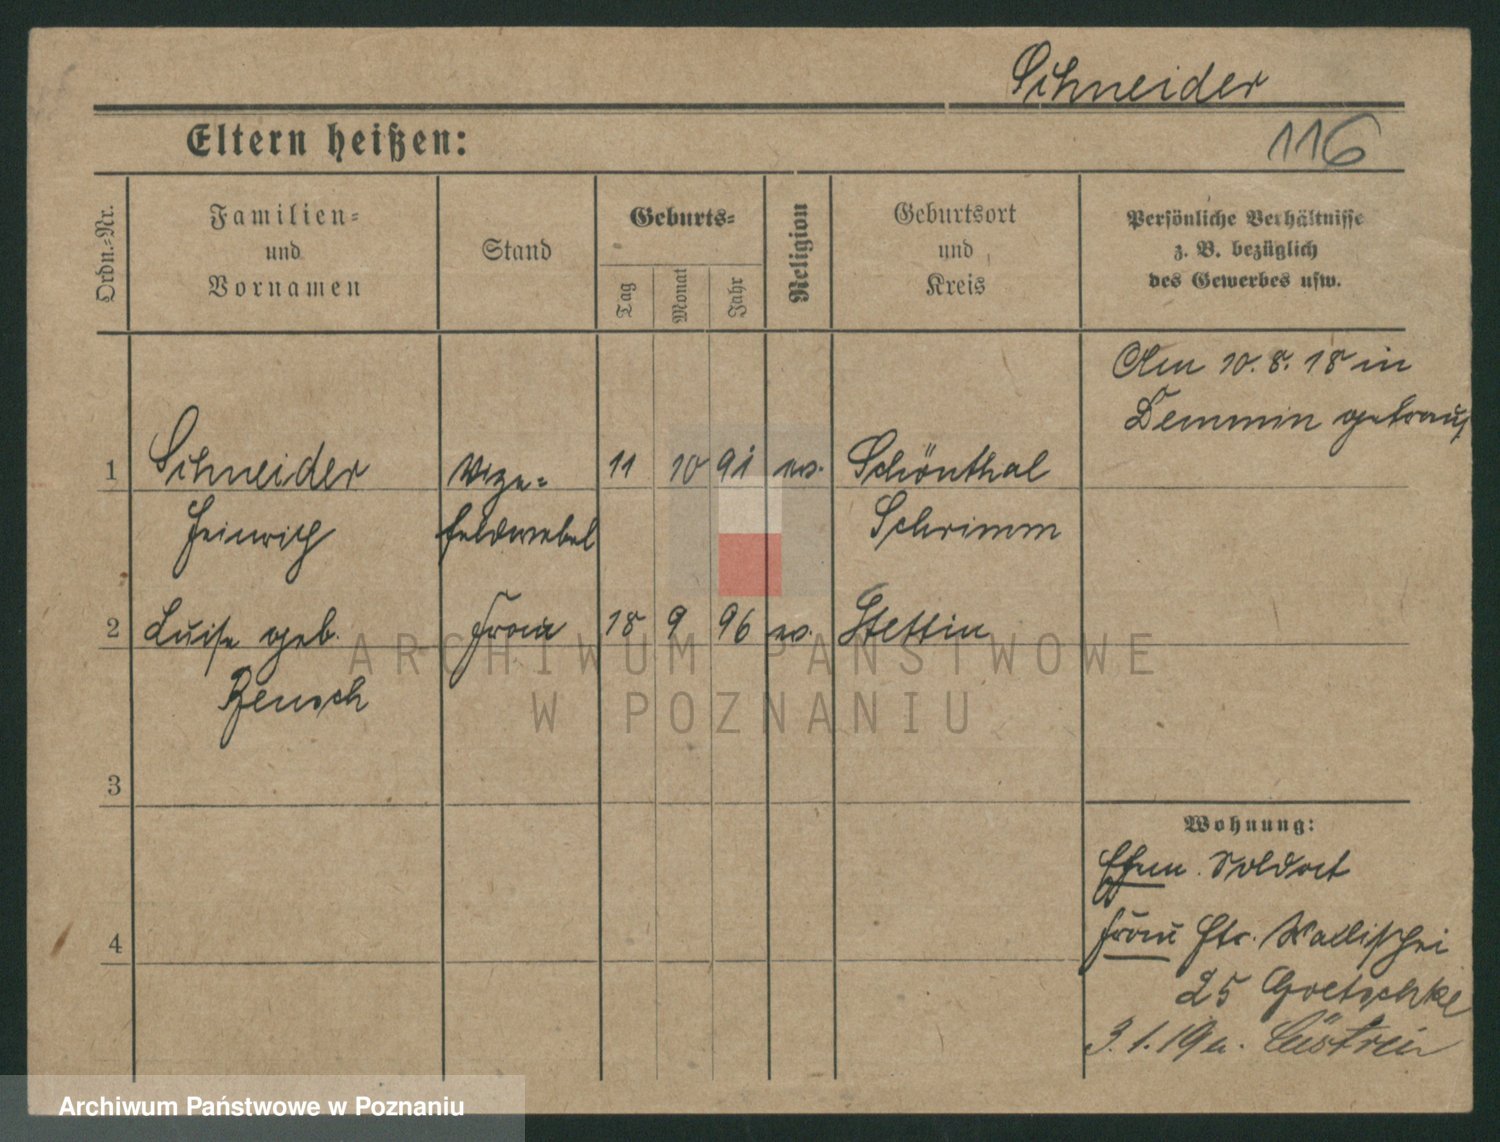 Schneider
116
Eltern heißen:
Ordn.=Nr.
Familien=
und
Vornamen
Stand
Geburts=
Tag
Monat
Jahr
Religion
Geburtsort
und
Kreis
Persönliche Verhältnisse
z. B. bezüglich
des Gewerbes usw.
Am 10. 8. 18 in
Demmin getraut
1 Schneider Vize= 11 10 91 ev. Schönthal
Heinrich feldwebel Schrimm
2 Luise geb. Frau 18 9 96 ev. Stettin
3
4
Wohnung:
Ehem. Soldat
Frau Str. Wallischei
25 Goetschke
3.1.19 n. Cüstrin
ARCHIWUM PAŃSTWOWE
W POZNANIU
Archiwum Państwowe w Poznaniu